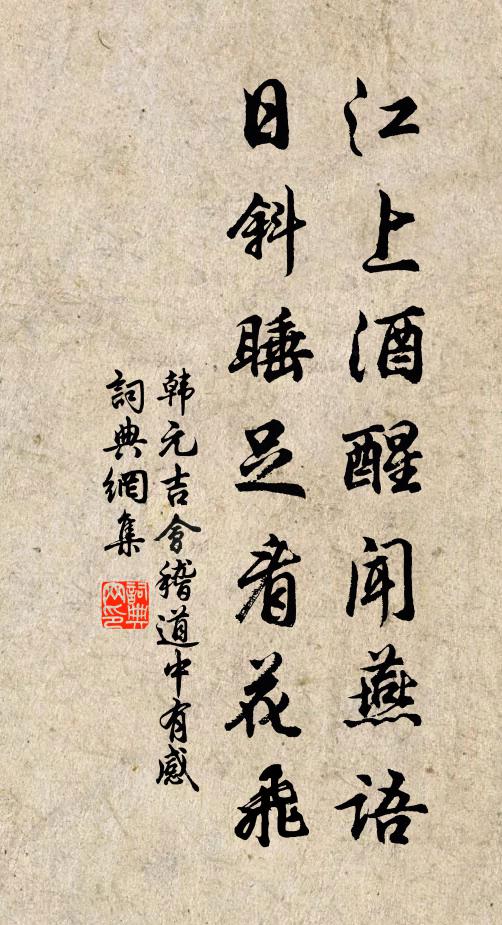 江上酒醒聞燕語
日斜睡足看花飛
韩元吉會稽道中有感
詞典網集
詞典
网印